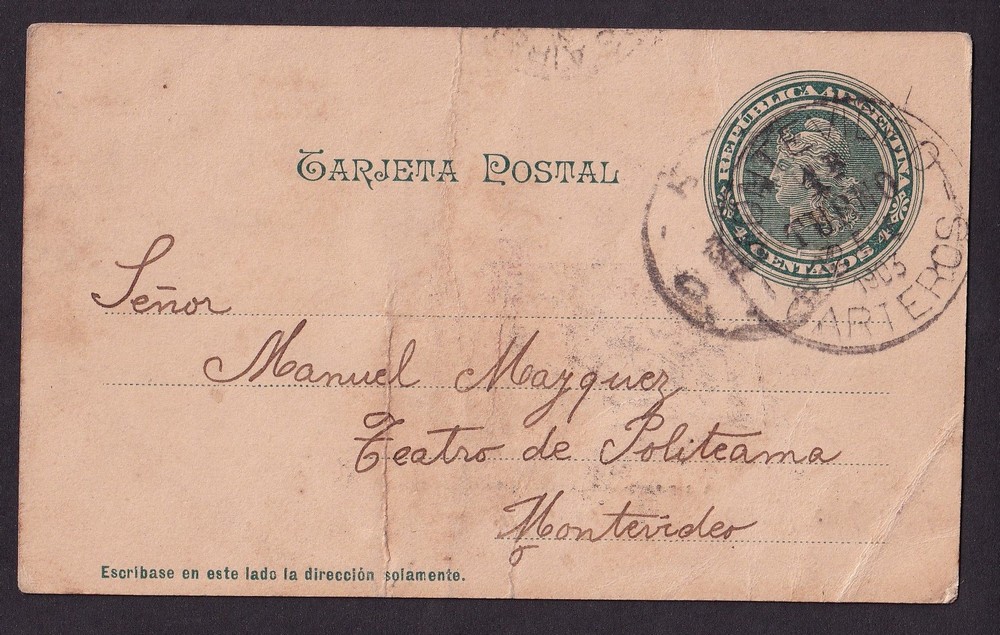 TARJETA POSTAL
REPUBLICA ARGENTINA
4 CENTAVOS 4
TURNO
1903
CARTEROS
Señor
Manuel Mazquez
Teatro de Politeama
Montevideo
Escríbase en este lado la dirección solamente.